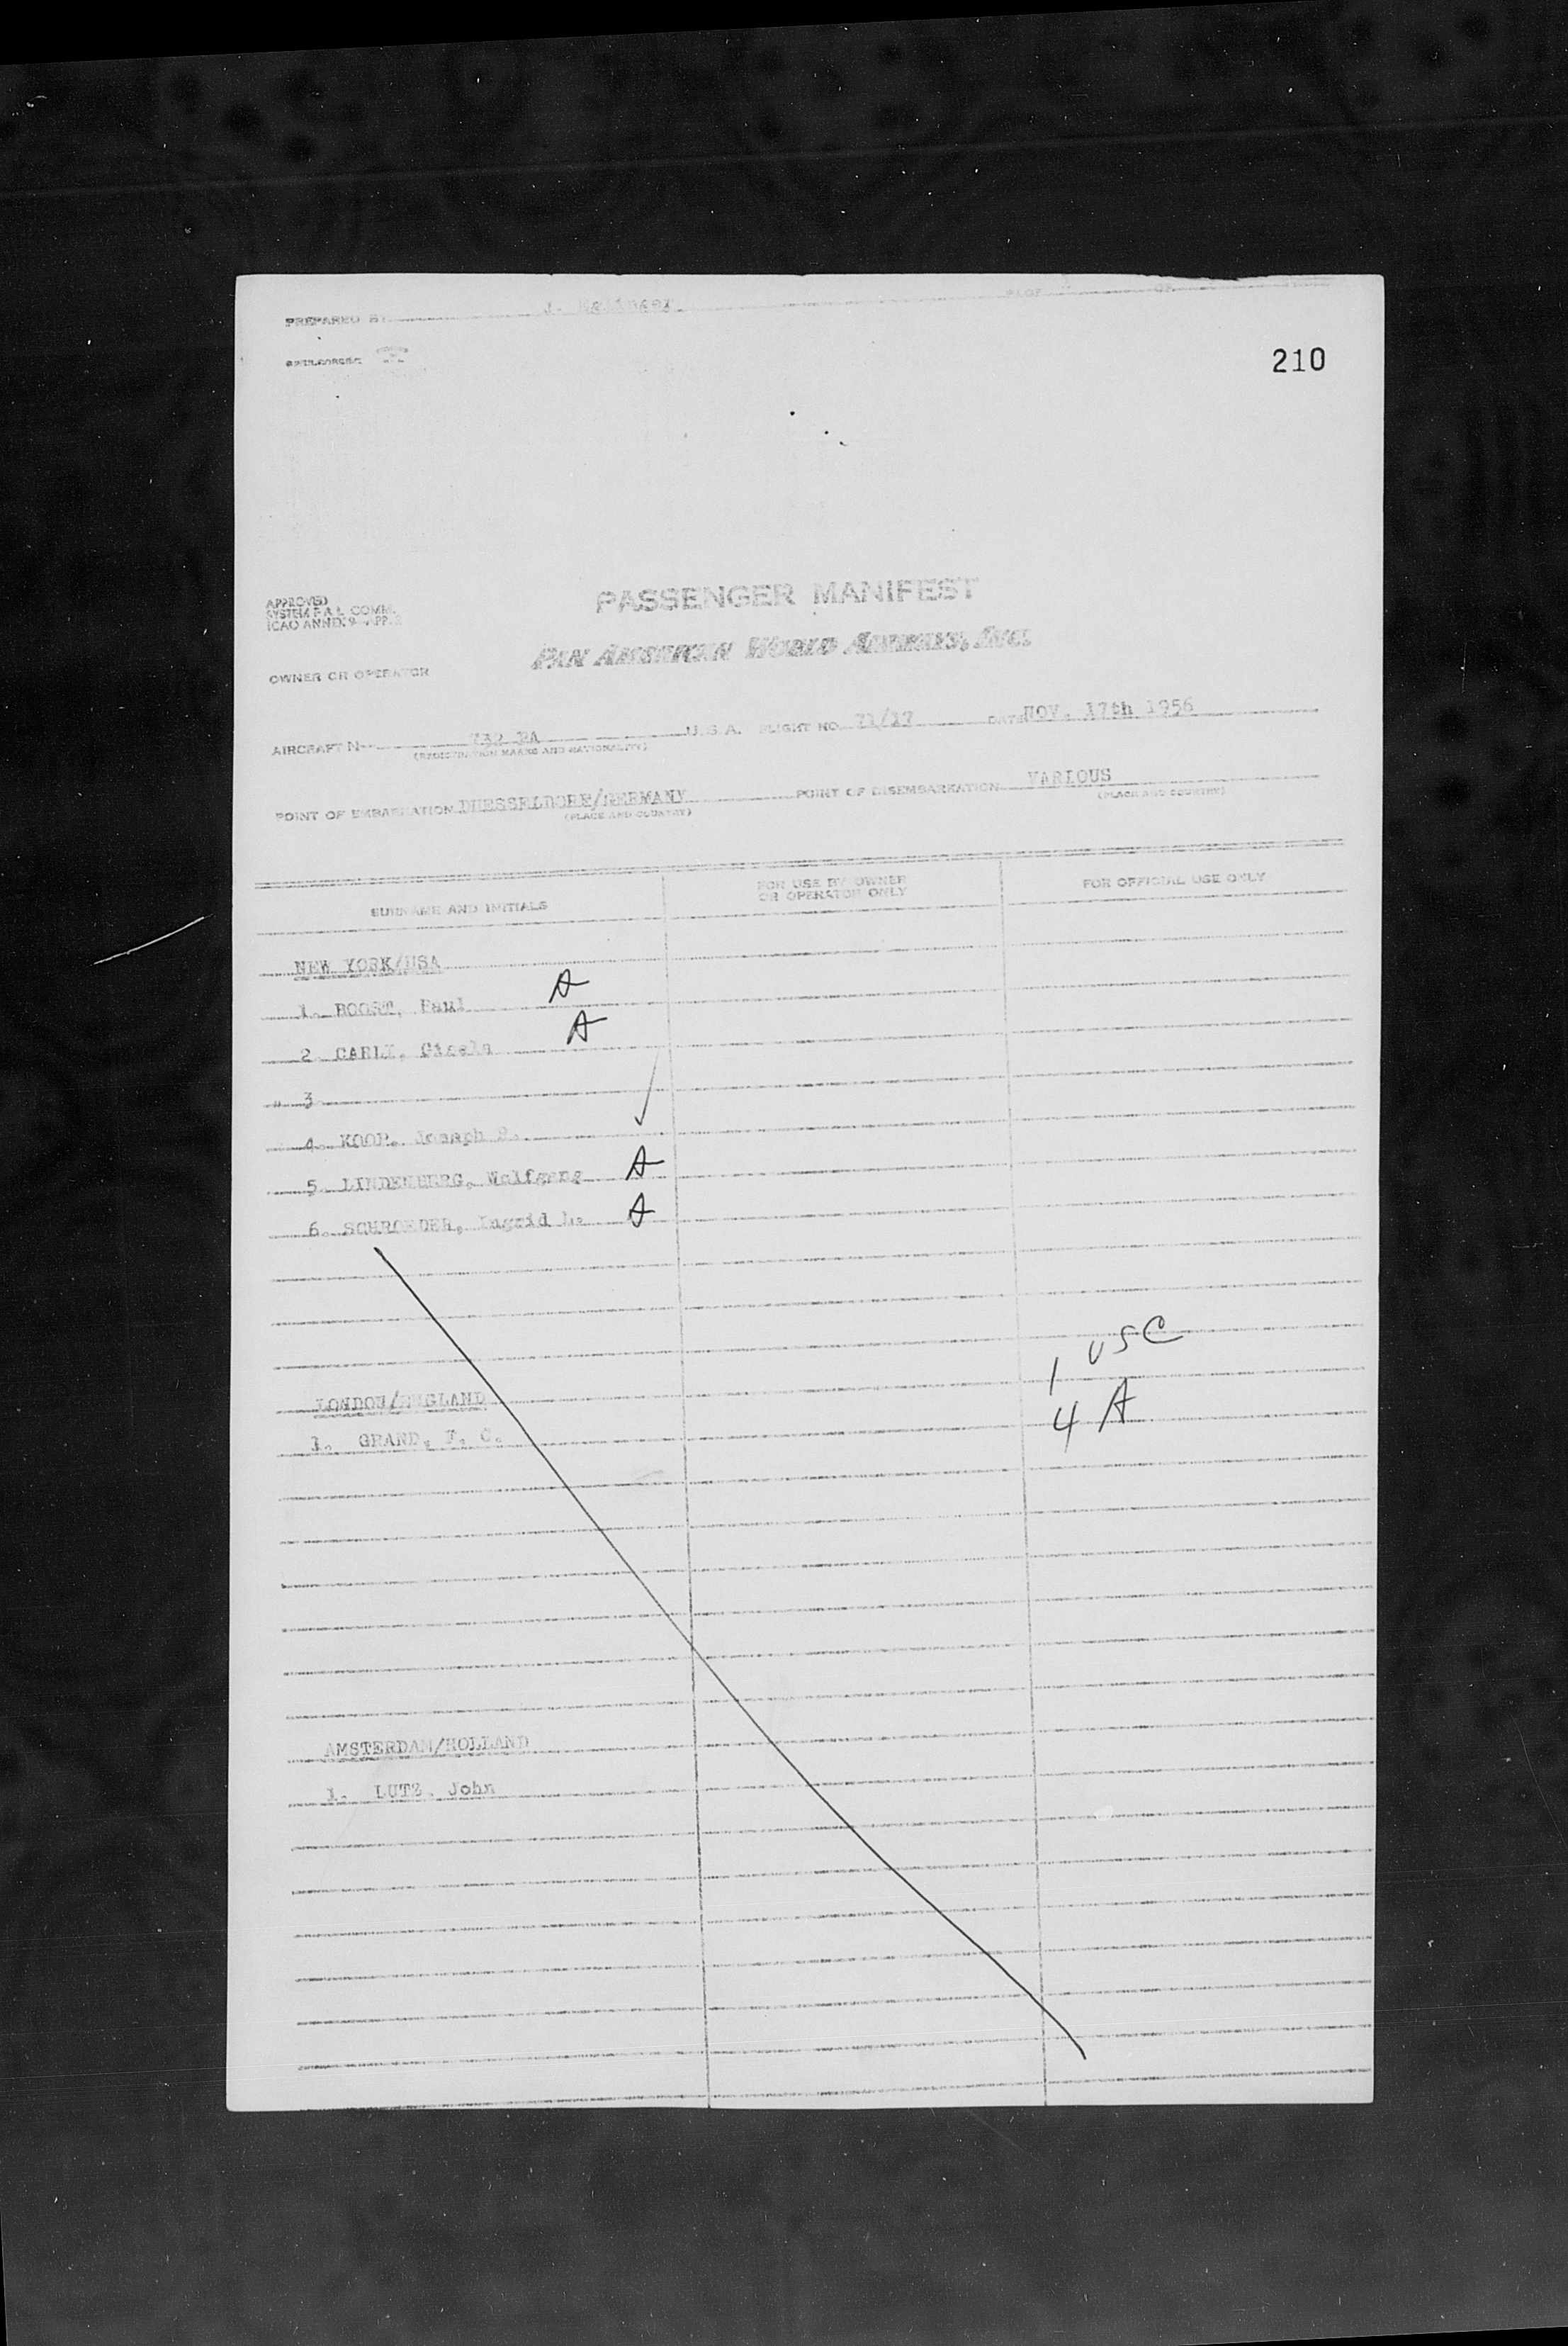 PREPARED BY J.
210
APPROVED
SYSTEM F.A.L. COMM.
ICAO ANNEX 9 APP. 2
PASSENGER MANIFEST
PAN AMERICAN WORLD AIRWAYS, INC.
OWNER OR OPERATOR
AIRCRAFT N 732 PA U.S.A. FLIGHT NO. 71/17 DATE NOV. 17th 1956
(REGISTRATION MARKS AND NATIONALITY)
POINT OF EMBARKATION DUESSELDORF/GERMANY POINT OF DISEMBARKATION VARIOUS
(PLACE AND COUNTRY) (PLACE AND COUNTRY)
SURNAME AND INITIALS FOR USE BY OWNER OR OPERATOR ONLY FOR OFFICIAL USE ONLY
NEW YORK/USA
1. BOOST, Paul A
2. Gisela A
3
4. KOOP, Joseph S.
5. LINDENBERG, Wolfgang A
6. SCHROEDER, Ingrid L. A
1 USC
4 A
LONDON/ENGLAND
1. GRAND, F. C.
AMSTERDAM/HOLLAND
1. LUTZ, John